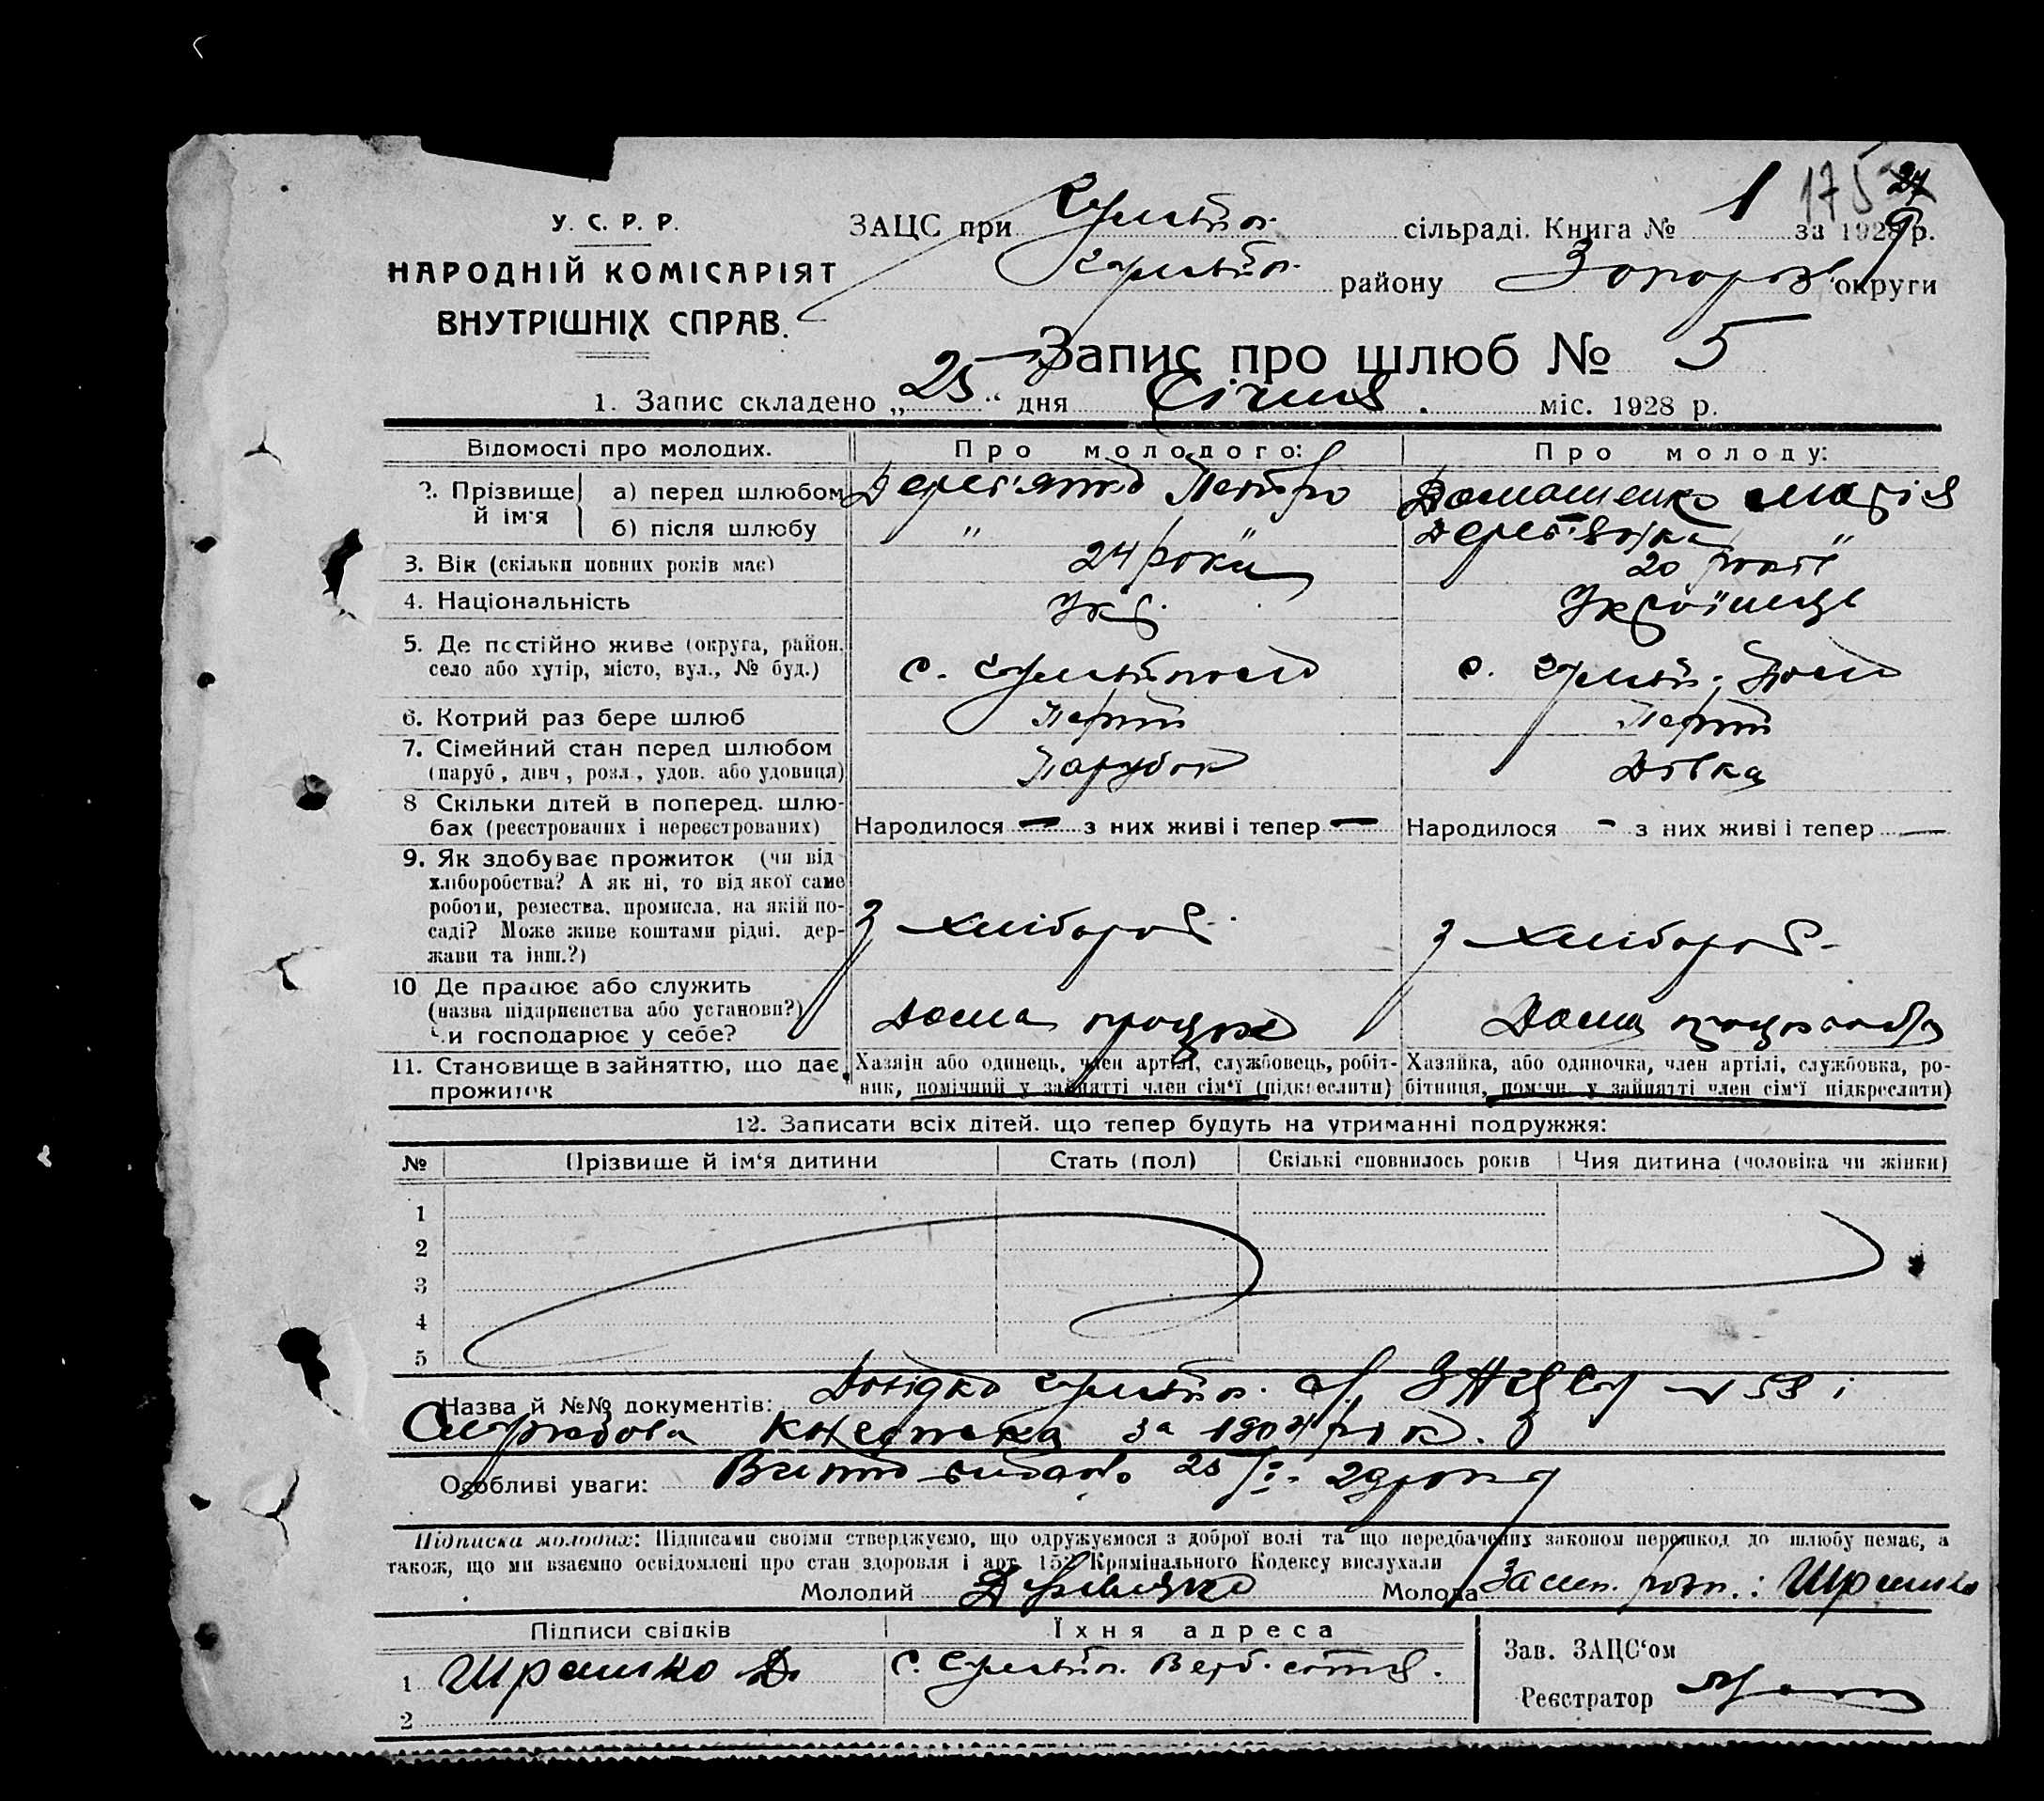 175 27
У. С. Р. Р.
НАРОДНІЙ КОМІСАРІЯТ
ВНУТРІШНІХ СПРАВ.
ЗАЦС при Гуляйп. сільраді. Книга № 1 за 1929 р.
Гуляйп. району Запорозь округи
Запис про шлюб № 5
1. Запис складено „25“ дня Січня міс. 1928 р.
Відомості про молодих. Про молодого: Про молоду:
2. Прізвище й ім'я
а) перед шлюбом Дерев'янко Петро Домашенко Марія
б) після шлюбу " " Дерев'янка "
3. Вік (скільки повних років має) 24 роки 20 років
4. Національність Укр. Українець
5. Де постійно живе (округа, район,
село або хутір, місто, вул., № буд.) с. Гуляйполе с. Гуляй-Поле
6. Котрий раз бере шлюб Перш Перш
7. Сімейний стан перед шлюбом
(паруб., дівч., розл., удов. або удовиця) Парубок Дівка
8 Скільки дітей в поперед. шлю-
бах (реєстрованих і нереєстрованих) Народилося — з них живі і тепер — Народилося - з них живі і тепер —
9. Як здобуває прожиток (чи від
хліборобства? А як ні, то від якої саме
роботи, ремества, промисла, на якій по-
саді? Може живе коштами рідні, дер-
жави та інш.?) З хлібороб. З хлібороб.
10 Де працює або служить
(назва підприєнства або установи?)
Чи господарює у себе? Дома працює Дома
11. Становище в зайняттю, що дає
прожиток
Хазяїн або одинець, член артілі, службовець, робіт-
ник, помічний у зайнятті член сім'ї (підкреслити)
Хазяйка, або одиночка, член артілі, службовка, ро-
бітниця, поміч. у зайнятті член сім'ї підкреслити)
12. Записати всіх дітей, що тепер будуть на утриманні подружжя:
№ Прізвище й ім'я дитини Стать (пол) Скількі сповнилось років Чия дитина (чоловіка чи жінки)
1
2
3
4
5
Назва й №№ документів: Довідка Гуляйп. ЗАЦСу № 58 і
книжка за 1904 рік.
Особливі уваги: видано 25/I- 29 року
Підписка молодих: Підписами своїми стверджуємо, що одружуємося з доброї волі та що передбачених законом перешкод до шлюбу немає, а
також, що ми взаємно освідомлені про стан здоровля і арт. 15 Кримінального Кодексу вислухали
Молодий Молода
Підписи свідків Їхня адреса Зав. ЗАЦС'ом
1 Д. с. Гуляйп. Верб. сотня.
Реєстратор
2